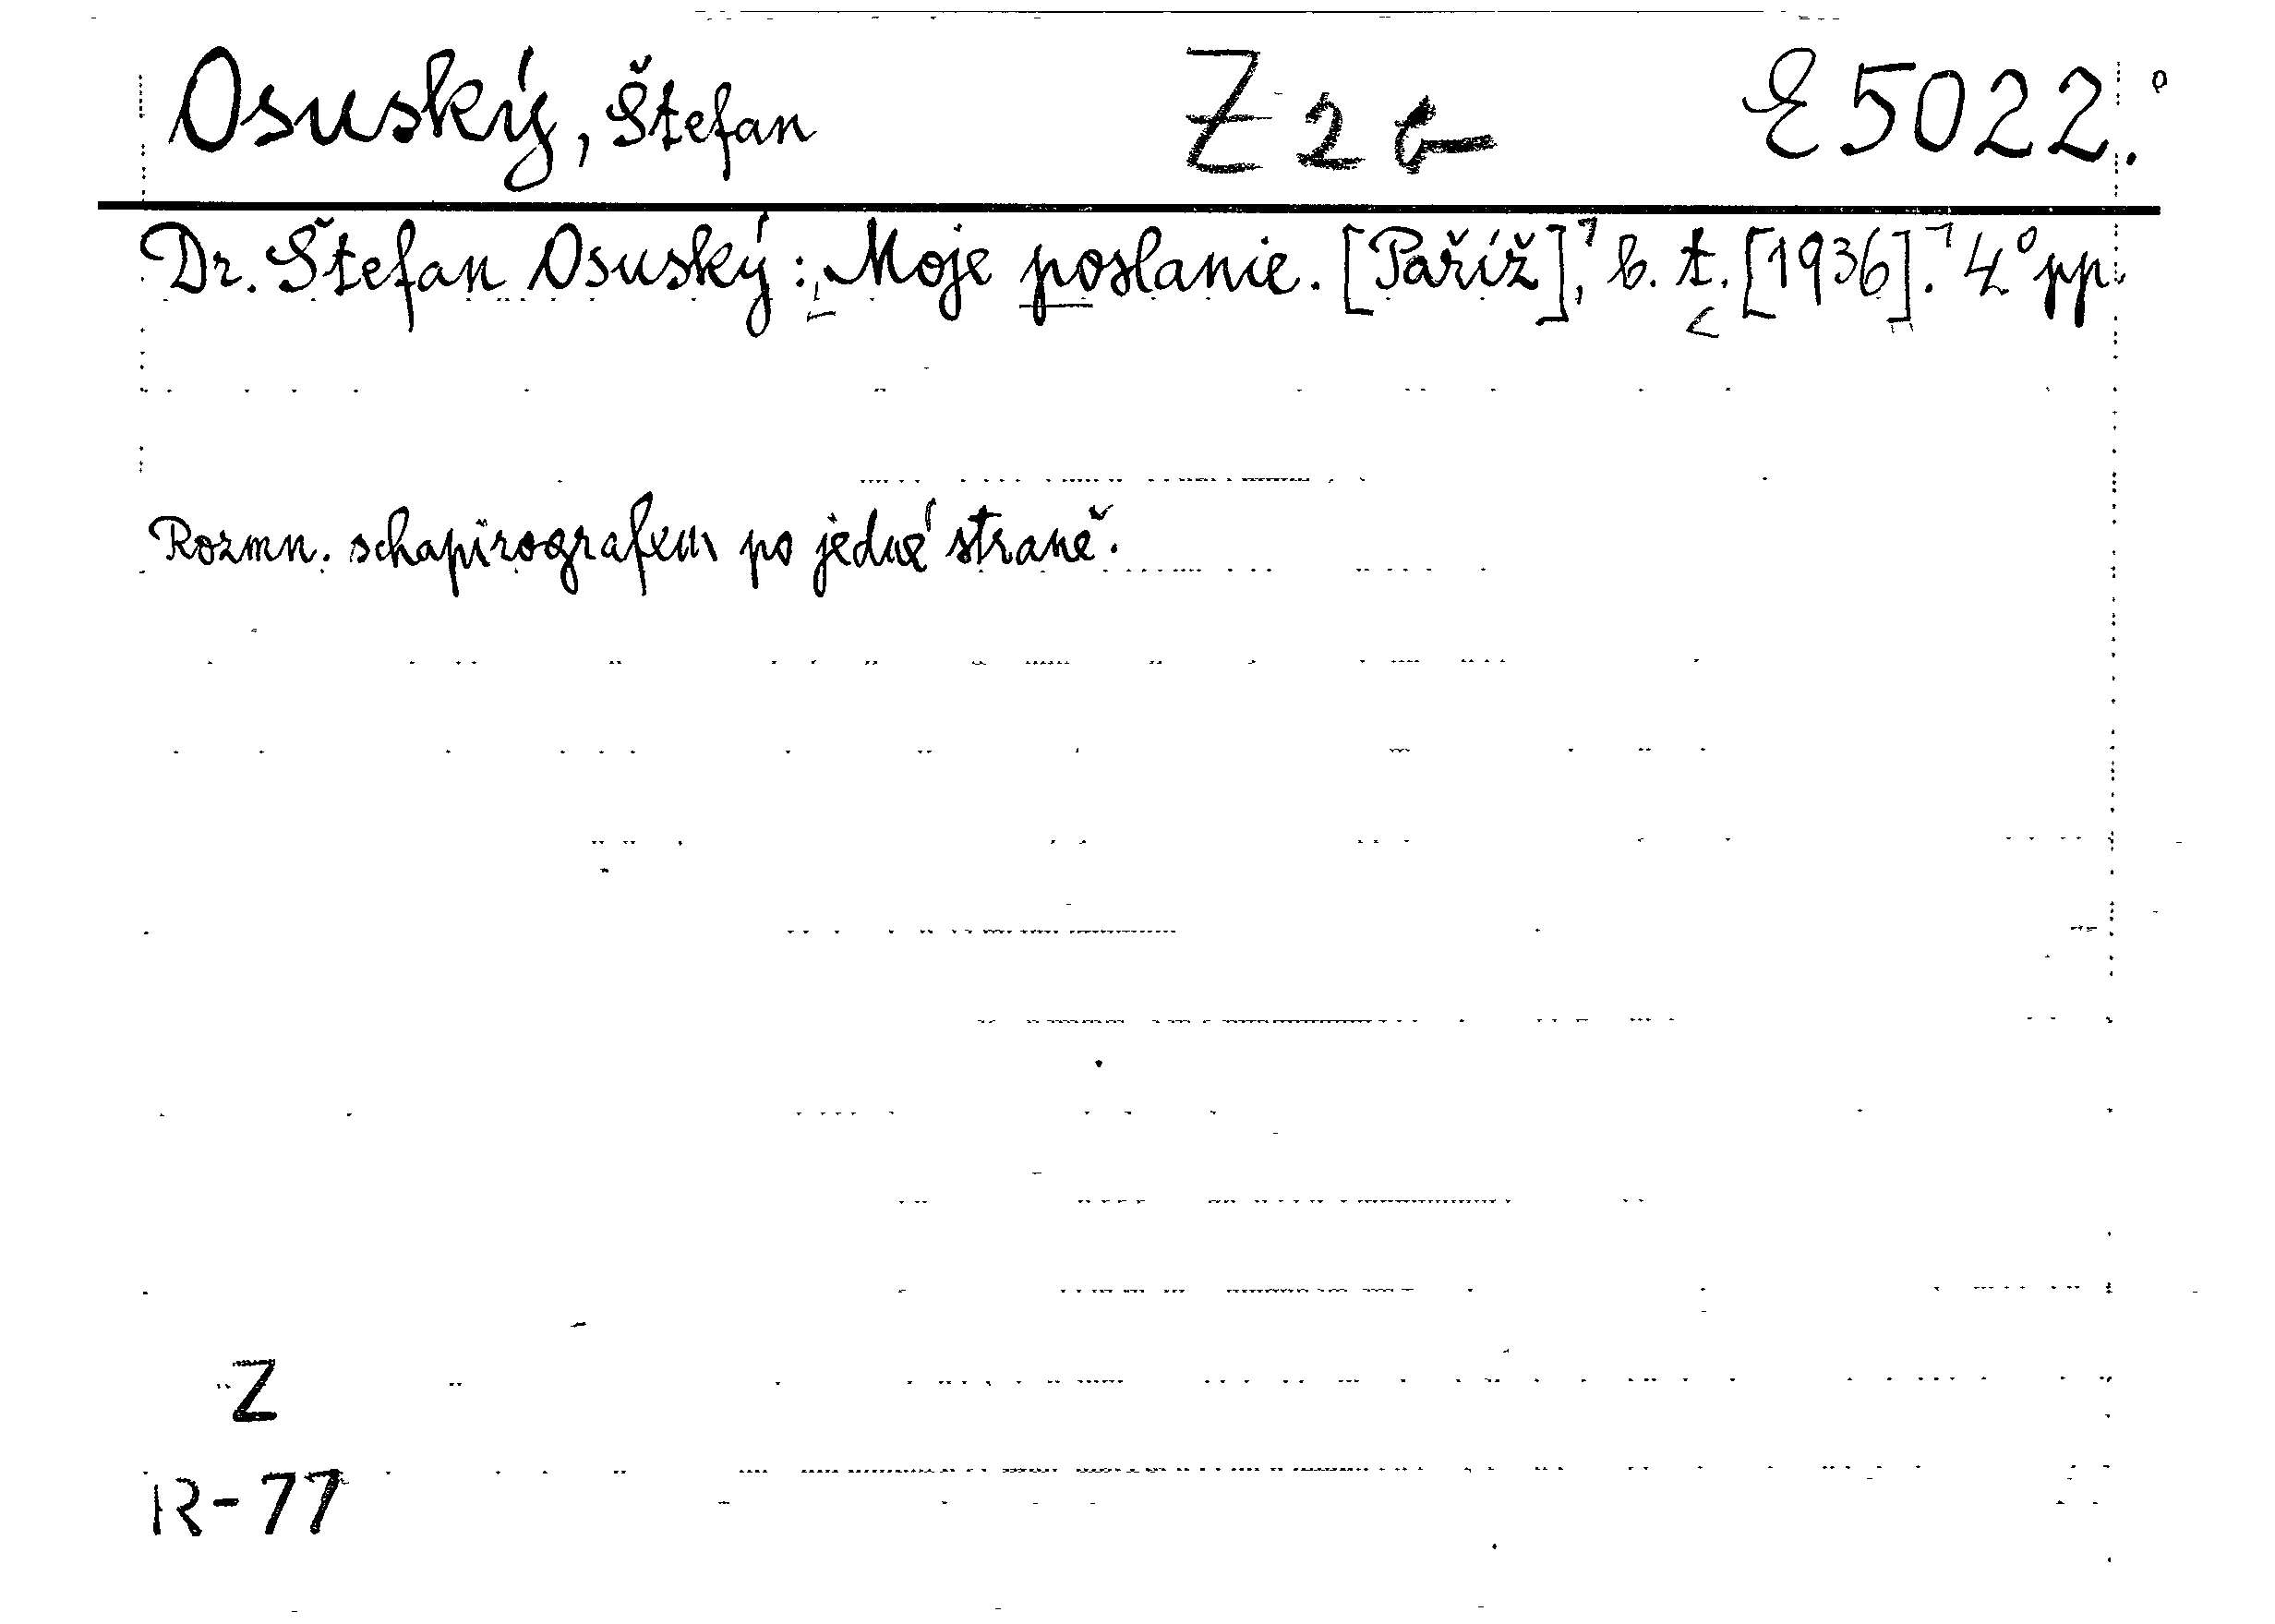 Osuský, Štefan Z 2 b E 5022.
Dr. Štefan Osuský: Moje poslanie. [Paříž], b. t. [1936]. 4° pp.
Rozmn. schapirografem po jedné straně.
Z
R-77